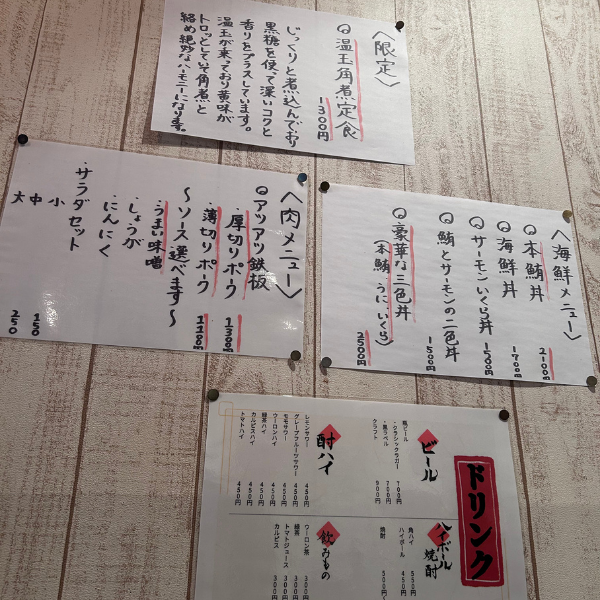 〈限定〉
温玉角煮定食
1300円
じっくりと煮込んでおり
黒糖を使って深いコクと
香りをプラスしています。
温玉が乗っており黄味が
トロッとしていて角煮と
絡め絶妙なハーモニーになります。
〈肉メニュー〉
アツアツ鉄板
・厚切りポーク 1300円
薄切りポーク 1100円
〜ソース選べます〜
・うまい味噌
・しょうが
・にんにく
・サラダセット
小
中 150
大 250
〈海鮮メニュー〉
本鮪丼 2100円
海鮮丼 1700円
サーモンいくら丼 1500円
鮪とサーモンの二色丼 1500円
豪華な三色丼
(本鮪、うに、いくら) 2500円
ドリンク
ビール
瓶ビール
・クラシックラガー 700円
・黒ラベル 700円
クラフト 900円
酎ハイ
レモンサワー 450円
グレープフルーツサワー 450円
モモサワー 450円
ウーロンハイ 450円
緑茶ハイ 450円
カルピスハイ 450円
トマトハイ 450円
ハイボール
焼酎
角ハイ 550円
ハイボール 450円
焼酎 500円
飲みもの
ウーロン茶 300円
緑茶 300円
トマトジュース 300円
カルピス 300円